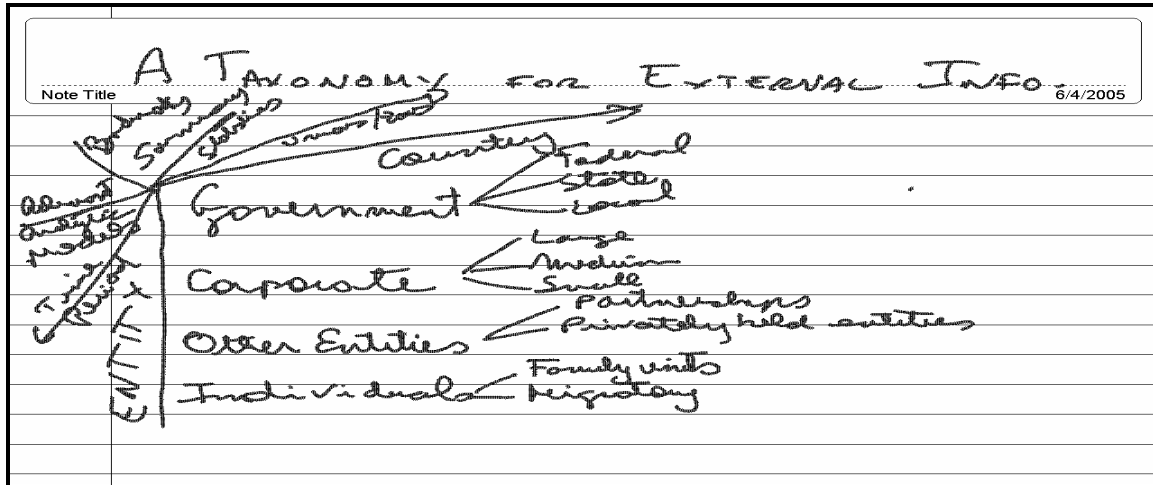 A TAXONOMY FOR EXTERNAL INFO.
Note Title
6/4/2005
Summary
Statistics
Country
Government
Federal
State
Local
Analytic
Models
Time
Period
ENTITY
Corporate
Large
Medium
Small
Other Entities
Partnerships
Privately held entities
Individuals
Family units
Migratory